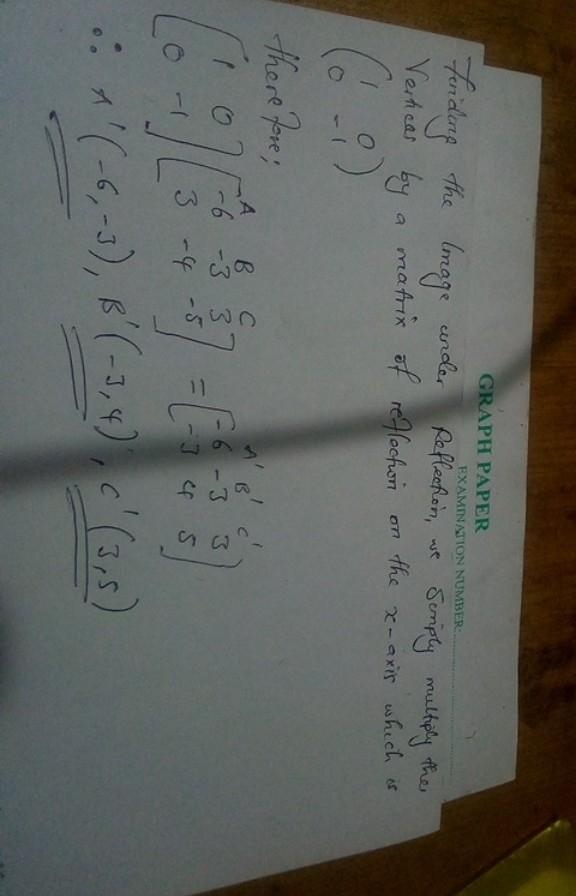 GRAPH PAPER
EXAMINATION NUMBER:
Finding the Image under Reflection, we Simply multiply the
Vertices by a matrix of reflection on the x-axis which is
( 1 0
0 -1 )
therefore;
A B C A' B' C'
[ 1 0 ] [ -6 -3 3 ] = [ -6 -3 3 ]
[ 0 -1 ] [ 3 -4 -5 ] [ -3 4 5 ]
∴ A'(-6,-3), B'(-3,4), C'(3,5)